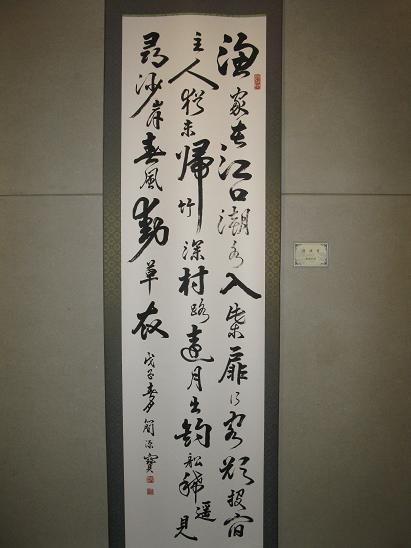 漁家在江口潮水入柴扉行客欲投宿
主人猶未歸竹深村路遠月出釣船稀遙見
尋沙岸春風動草衣
戊子春 簡 寶